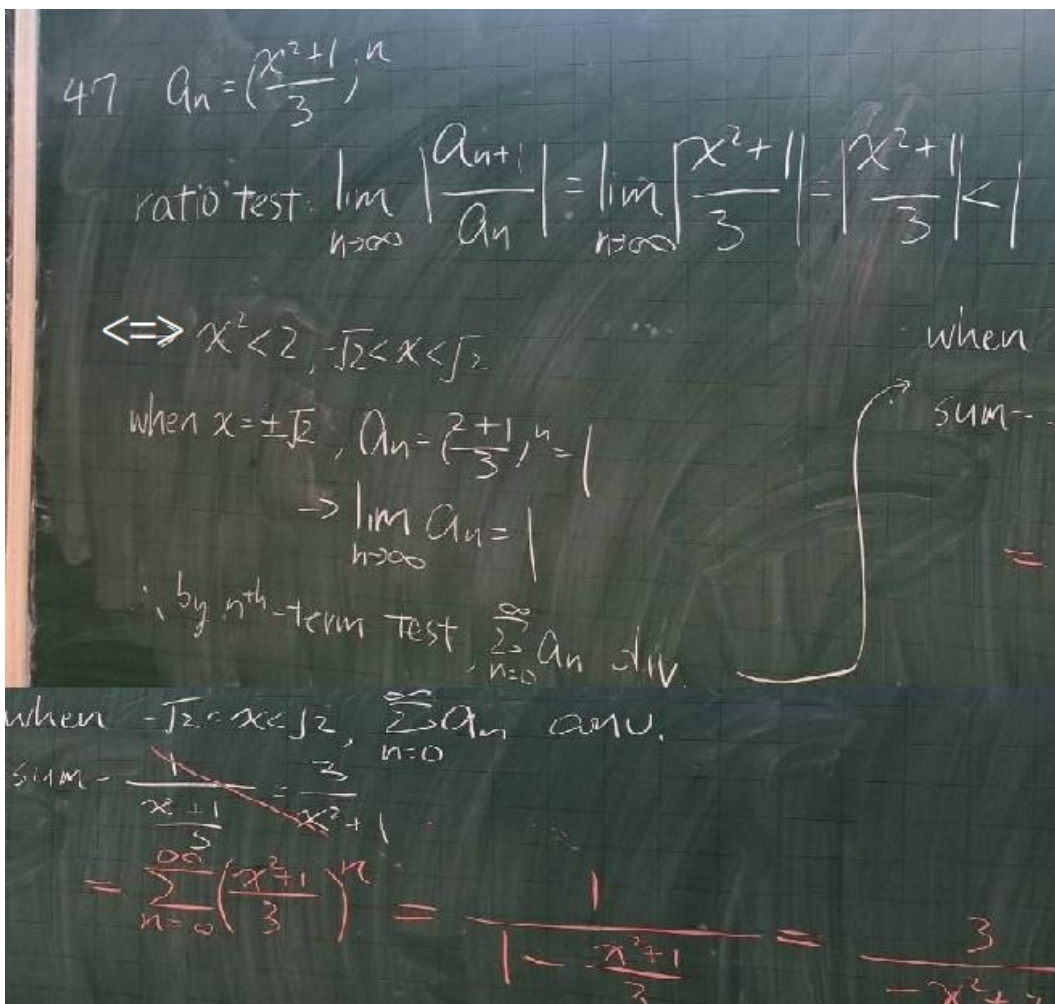 47 aₙ = (x²+1 / 3)ⁿ
ratio test: lim n→∞ |aₙ₊₁ / aₙ| = lim n→∞ |x²+1 / 3| = |x²+1 / 3| < 1
<=> x² < 2, -√2 < x < √2
when x = ±√2, aₙ = (2+1 / 3)ⁿ = 1
→ lim n→∞ aₙ = 1
∴ by nᵗʰ-term Test, ∑ n=0 ∞ aₙ div.
when
sum-
=
when -√2 < x < √2, ∑ n=0 ∞ aₙ conv.
sum- 1 / (x²+1 / 3) = 3 / x²+1
= ∑ n=∞ ∞ (x²+1 / 3)ⁿ = 1 / (1 - x²+1 / 3) = 3 / -x²+